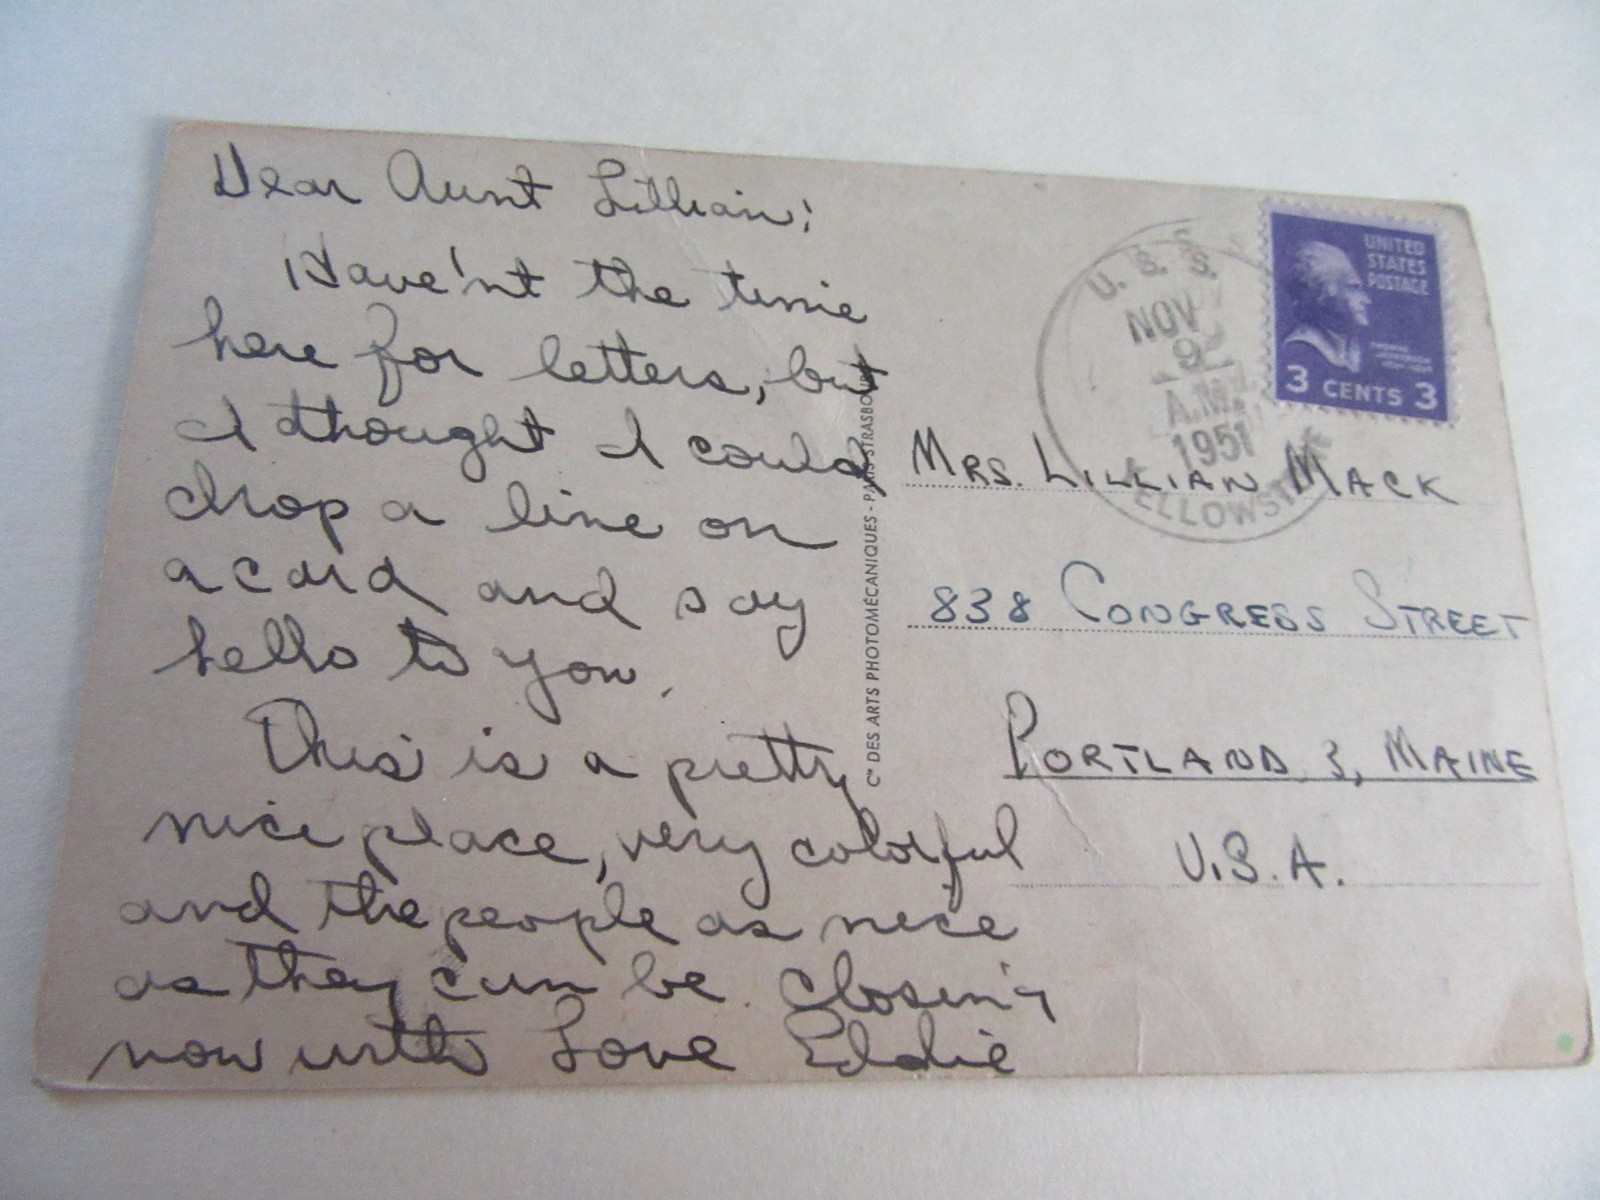 Dear Aunt Lillian;
Have'nt the time
here for letters, but
I thought I could
drop a line on
a card and say
hello to you.
This is a pretty
nice place, very colorful
and the people as nice
as they can be. Closing
now with Love Eddie
Cie DES ARTS PHOTOMÉCANIQUES - PARIS-STRASBOURG
U. S. S.
NOV
9
A.M.
1951
YELLOWSTONE
UNITED
STATES
POSTAGE
THOMAS
JEFFERSON
3 CENTS 3
MRS. LILLIAN MACK
838 CONGRESS STREET
PORTLAND, 3, MAINE
U.S.A.